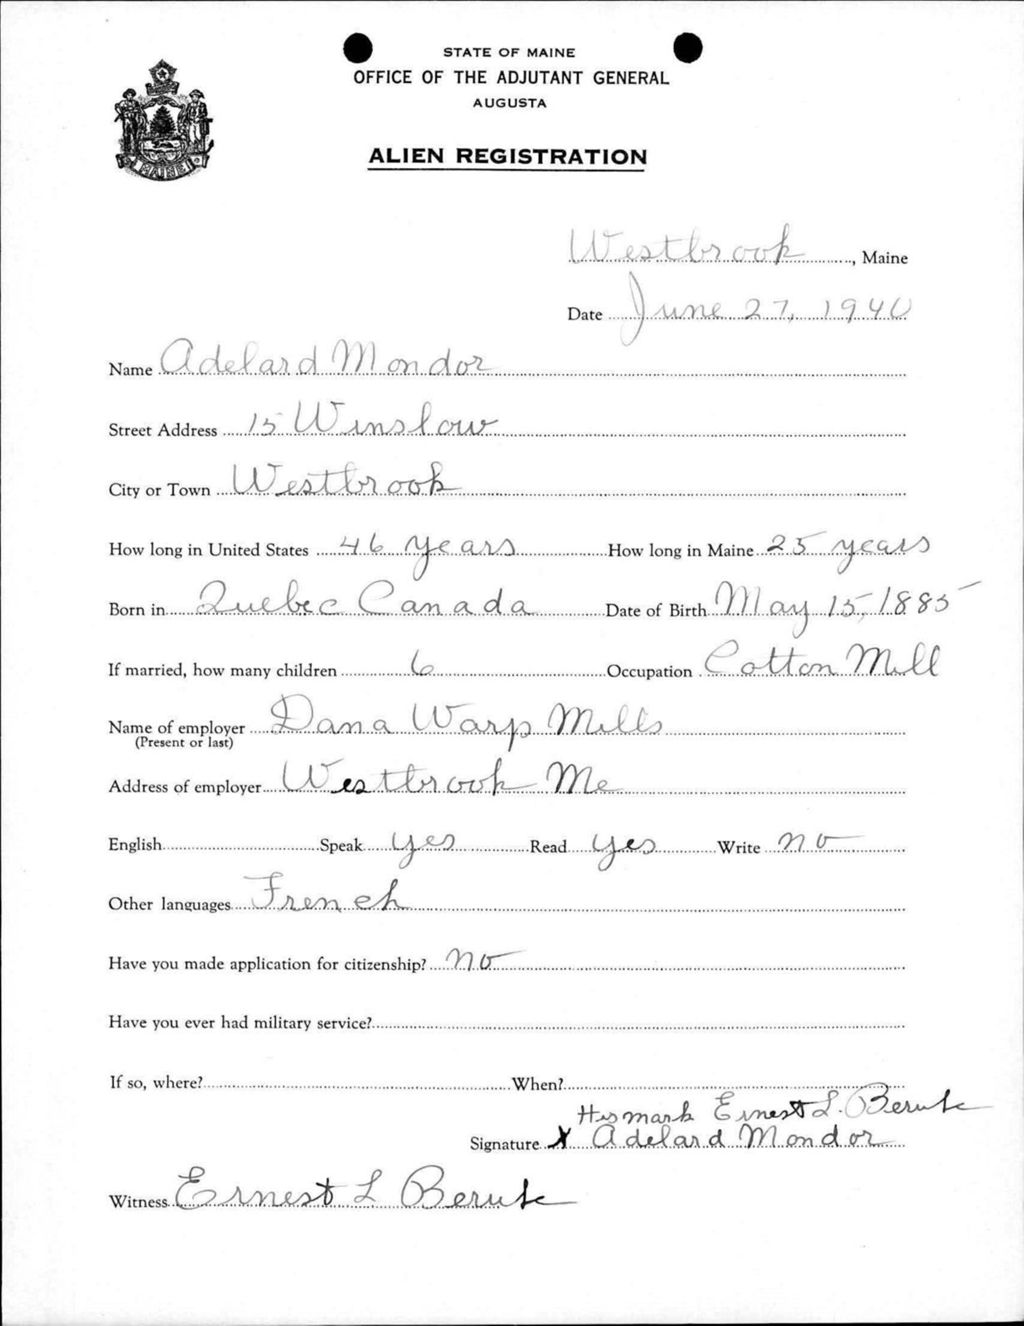 STATE OF MAINE
OFFICE OF THE ADJUTANT GENERAL
AUGUSTA
MAINE
ALIEN REGISTRATION
Westbrook, Maine
Date June 27, 1940
Name Adelard Mondor
Street Address 15 Winslow
City or Town Westbrook
How long in United States 46 years How long in Maine 25 years
Born in Quebec Canada Date of Birth May 15, 1885
If married, how many children 6 Occupation Cotton Mill
Name of employer Dana Warp Mills
(Present or last)
Address of employer Westbrook Me
English Speak yes Read yes Write no
Other languages French
Have you made application for citizenship? no
Have you ever had military service?
If so, where? When?
His mark Ernest L.
Signature X Adelard Mondor
Witness Ernest L